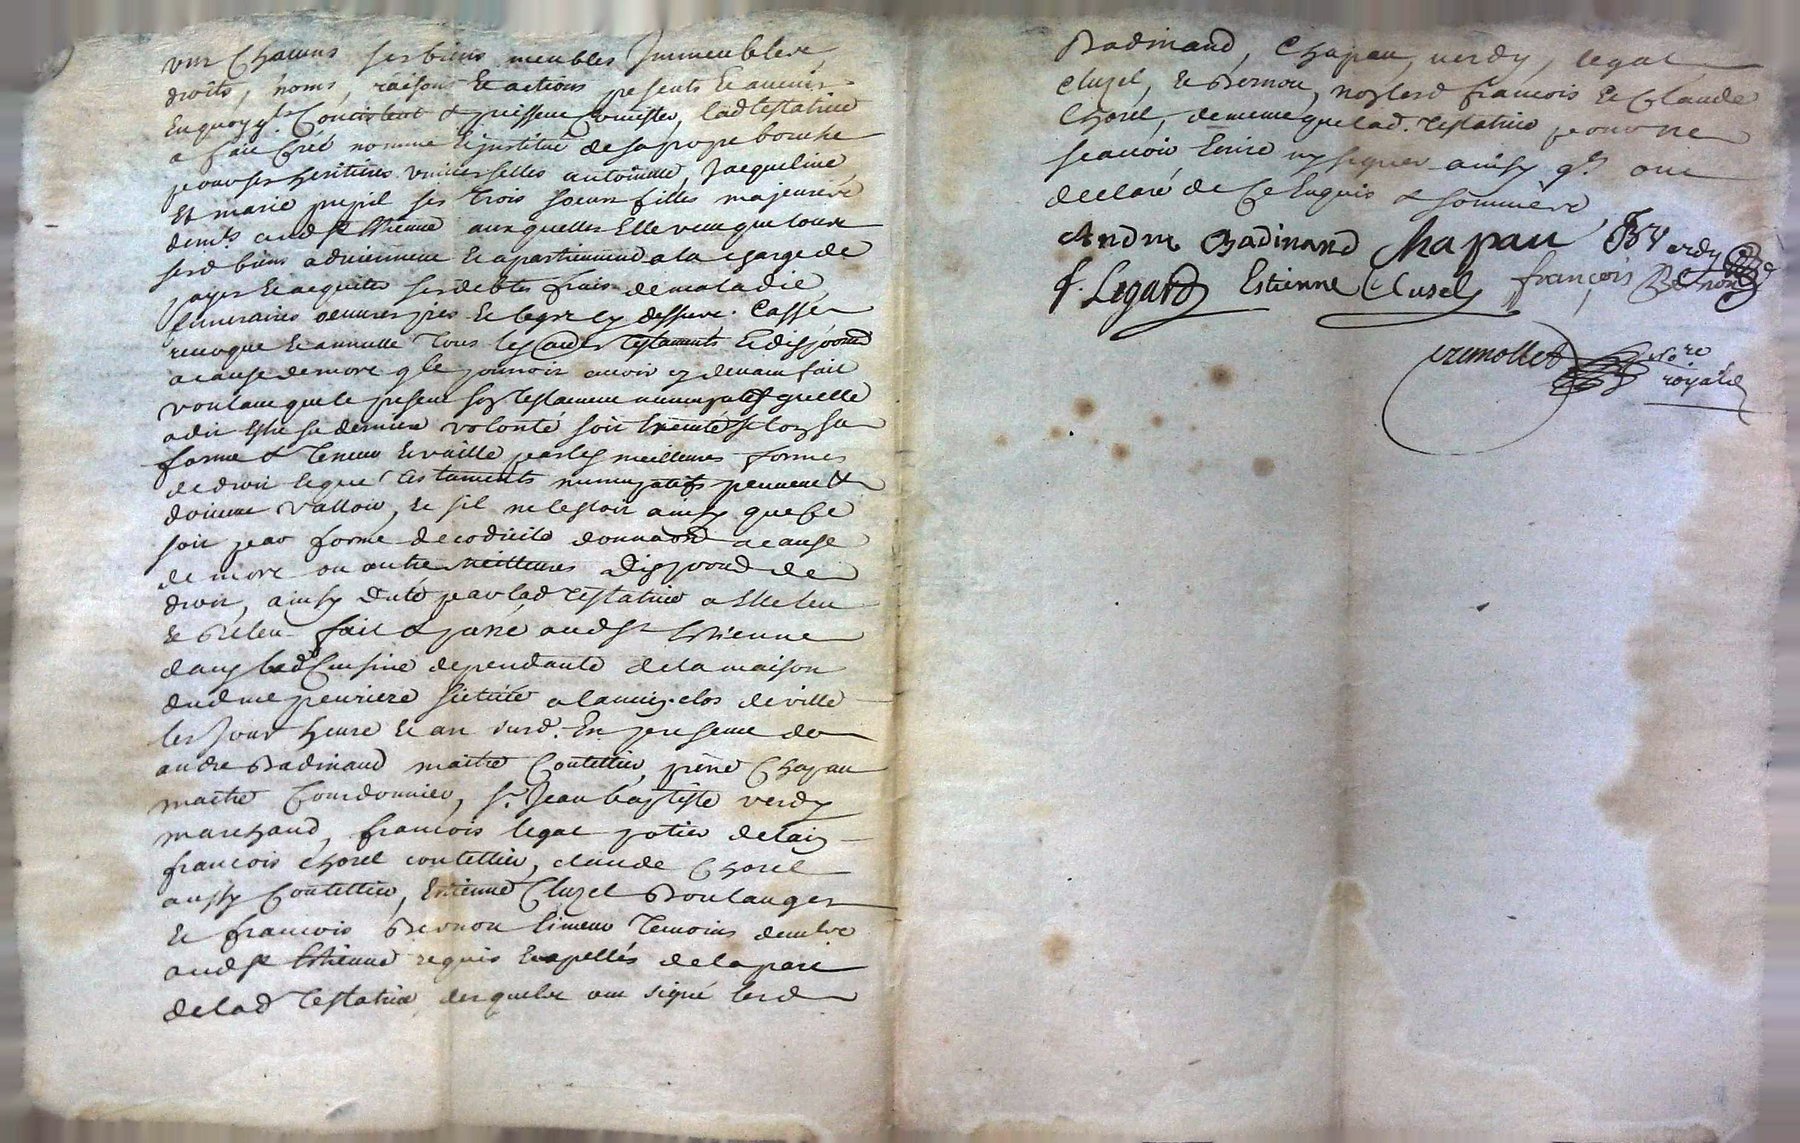 un chacuns ses biens meubles Jmmeubles
droits, noms, raisons et actions presents et avenir
En quoy qls. Concistent & puissent Concister, lad testatrice
a fait Créé nommé Ejnstitué de sa propre bouche
pour ses heritieres universelles antoinette, Jacqueline
Et marie pupil ses trois soeurs filles majeures
demts. aud st Etienne auxquelles Elle veut que tous
sesd biens adviennent et apartiennent a la charge de
payer et acquiter ses debtes frais de maladie,
funeraires oeuvres pies et legs cy dessus. Casse
revoque et annulle tous les autres Testaments et dispoond
a cause de mort qle pouroit avoir cy devant fait
voulant que le present soy testament nuncupatif quelle
a dit Estre sa derniere volonté soit Executé selon sa
forme & teneur Evaille par les meilleures formes
de droit que testaments nuncupatifs peuvent &
doivent valloir, et sil ne lestoit ainsy que ce
soit par forme de codicile donnaond a cause
de mort ou autre meilleures Dispoond de
droit, ainsy dicté par lad testatrice a Elle leu
Et Releu fait & passé aud st Etienne
dans lad Cuisine dependante de la maison
dud me peuriere scituée a lancien clos de ville
les Jour heure et an susd. En presence de
andre Badinand maitre Coutellier, piere Chapau
maitre Courdonnier, sr. Jean baptiste verdy
marchand, francois legat potier detain
francois chorel coutellier, claude Chorel
aussy Coutellier, Estienne Cluzel Boulanger
et francois Bernou limeur Temoins demts
aud st Etienne requis Eapellés de la part
de lad Testatrice, desquels ont signé lesd
Badinand, Chapau, verdy, legat
cluzel, et Bernou, non lesd francois et Claude
Chorel, de meme que lad. Testatrice pour ne
scavoir Ecrire ny signer ainsy qls. ont
declaré de ce Enquis & sommés
Andre Badinand Chapau JB Verdy
f. Legatd Estienne Clusel françois Bernou
vremollet Nore
royal